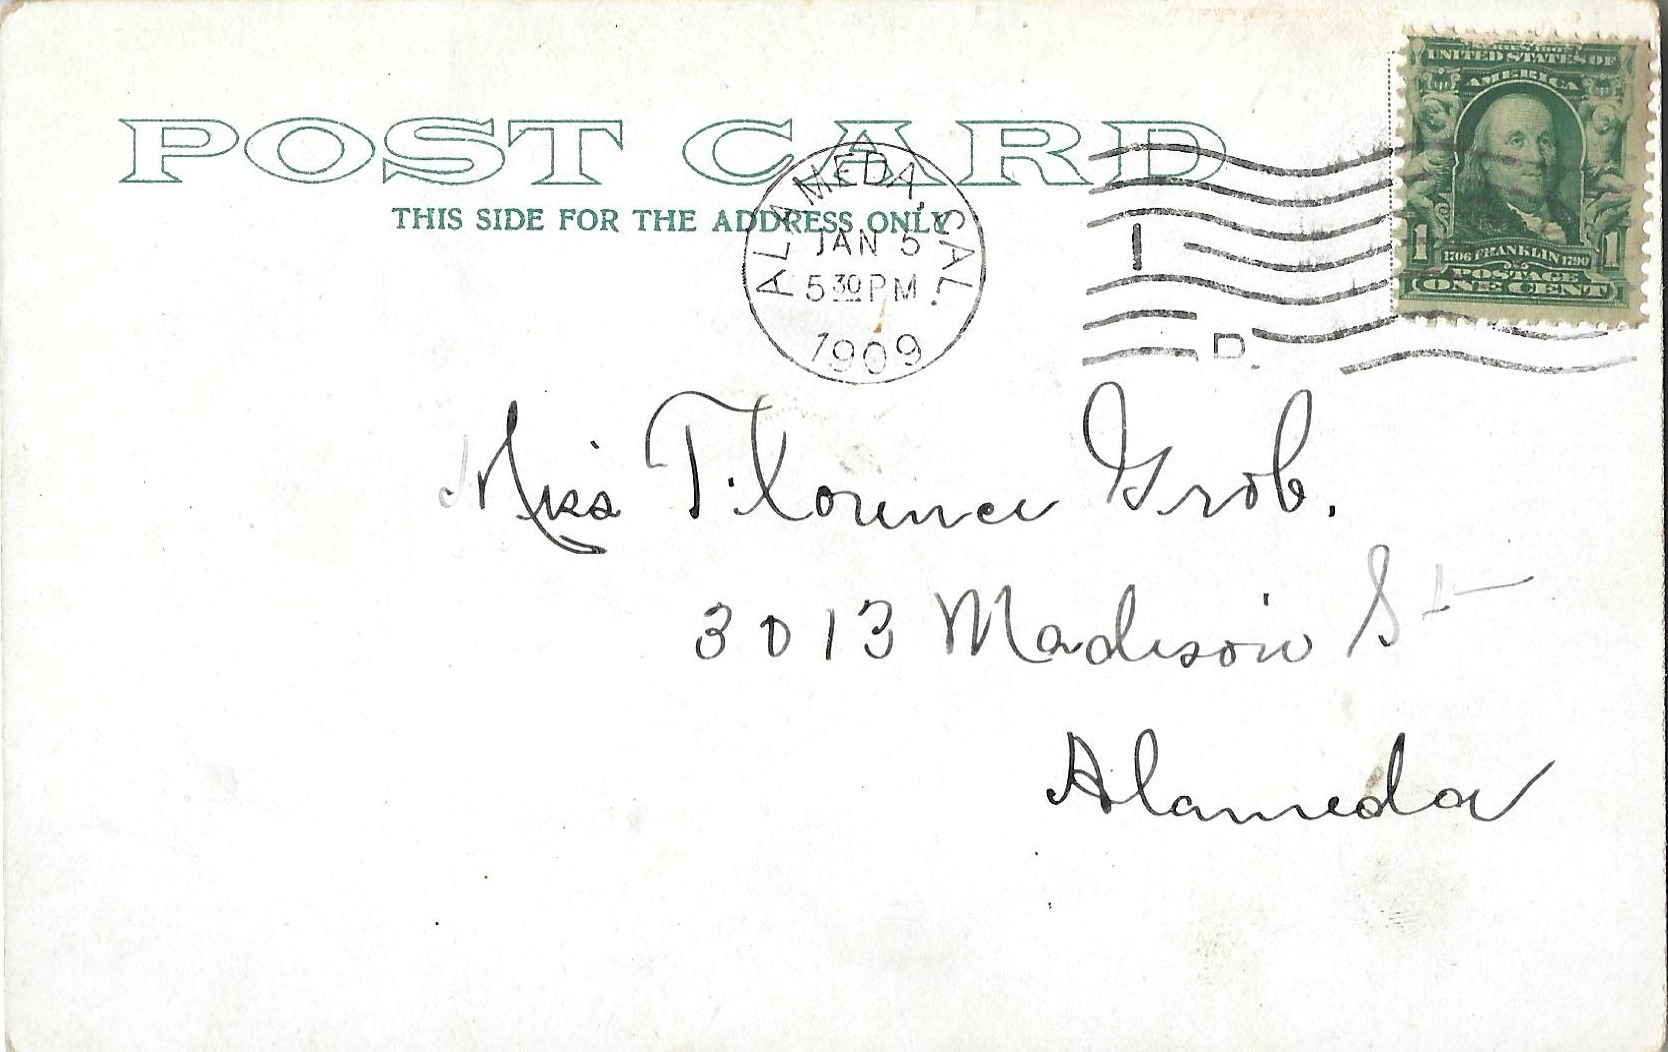 SERIES 1902
UNITED STATES OF
AMERICA
POST CARD
THIS SIDE FOR THE ADDRESS ONLY
ALAMEDA, CAL.
JAN 5
5 30 PM
1909
1
D.
1 1706 FRANKLIN 1790 1
POSTAGE
ONE CENT
Miss Florence Grob.
3013 Madison St
Alameda